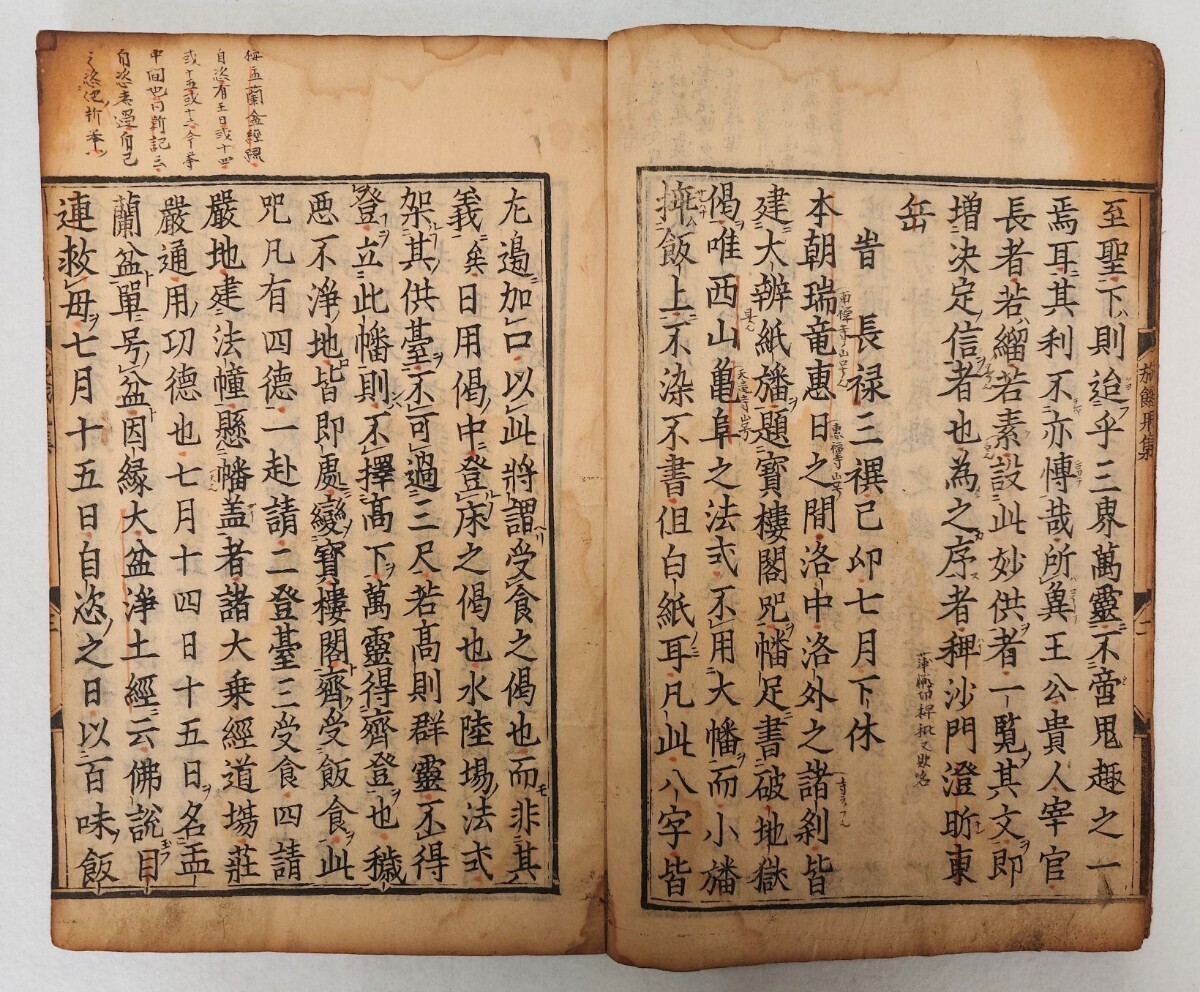 至聖下則迨乎三界萬靈不啻鬼趣之一
焉耳其利不亦愽哉所兾王公貴人宰官
長者若緇若素設此妙供者一覧其文即
増決定信者也為之序者稗沙門澄昕東
岳
旹長禄三禩己卯七月下休
本朝瑞竜惠日之間洛中洛外之諸刹皆
建大辨紙旙題寶樓閣咒幡足書破地獄
偈唯西山亀阜之法式不用大幡而小旙
挿飯上不染不書但白紙耳凡此八字皆
施餓鬼集
二
南禅寺山号
惠福寺山号
天竜寺山号
左邉加口以此將謂受食之偈也而非其
義矣日用偈中登床之偈也水陸場法式
架其供臺不可過三尺若髙則群靈不得
登立此幡則不擇髙下萬靈得齊登也穢
悪不淨地皆即處變寶樓閣齊受飯食此
咒凡有四德一赴請二登臺三受食四請
嚴地建法幢懸幡盖者諸大乗經道塲莊
嚴通用功德也七月十四日十五日名盂
蘭盆單号盆因縁大盆淨土經云佛說目
連救母七月十五日自恣之日以百味飯
盂蘭盆經疏
自恣有三日或十四
或十五或十六今挙
中間也同新記三
自恣者還自己
之恣他所挙